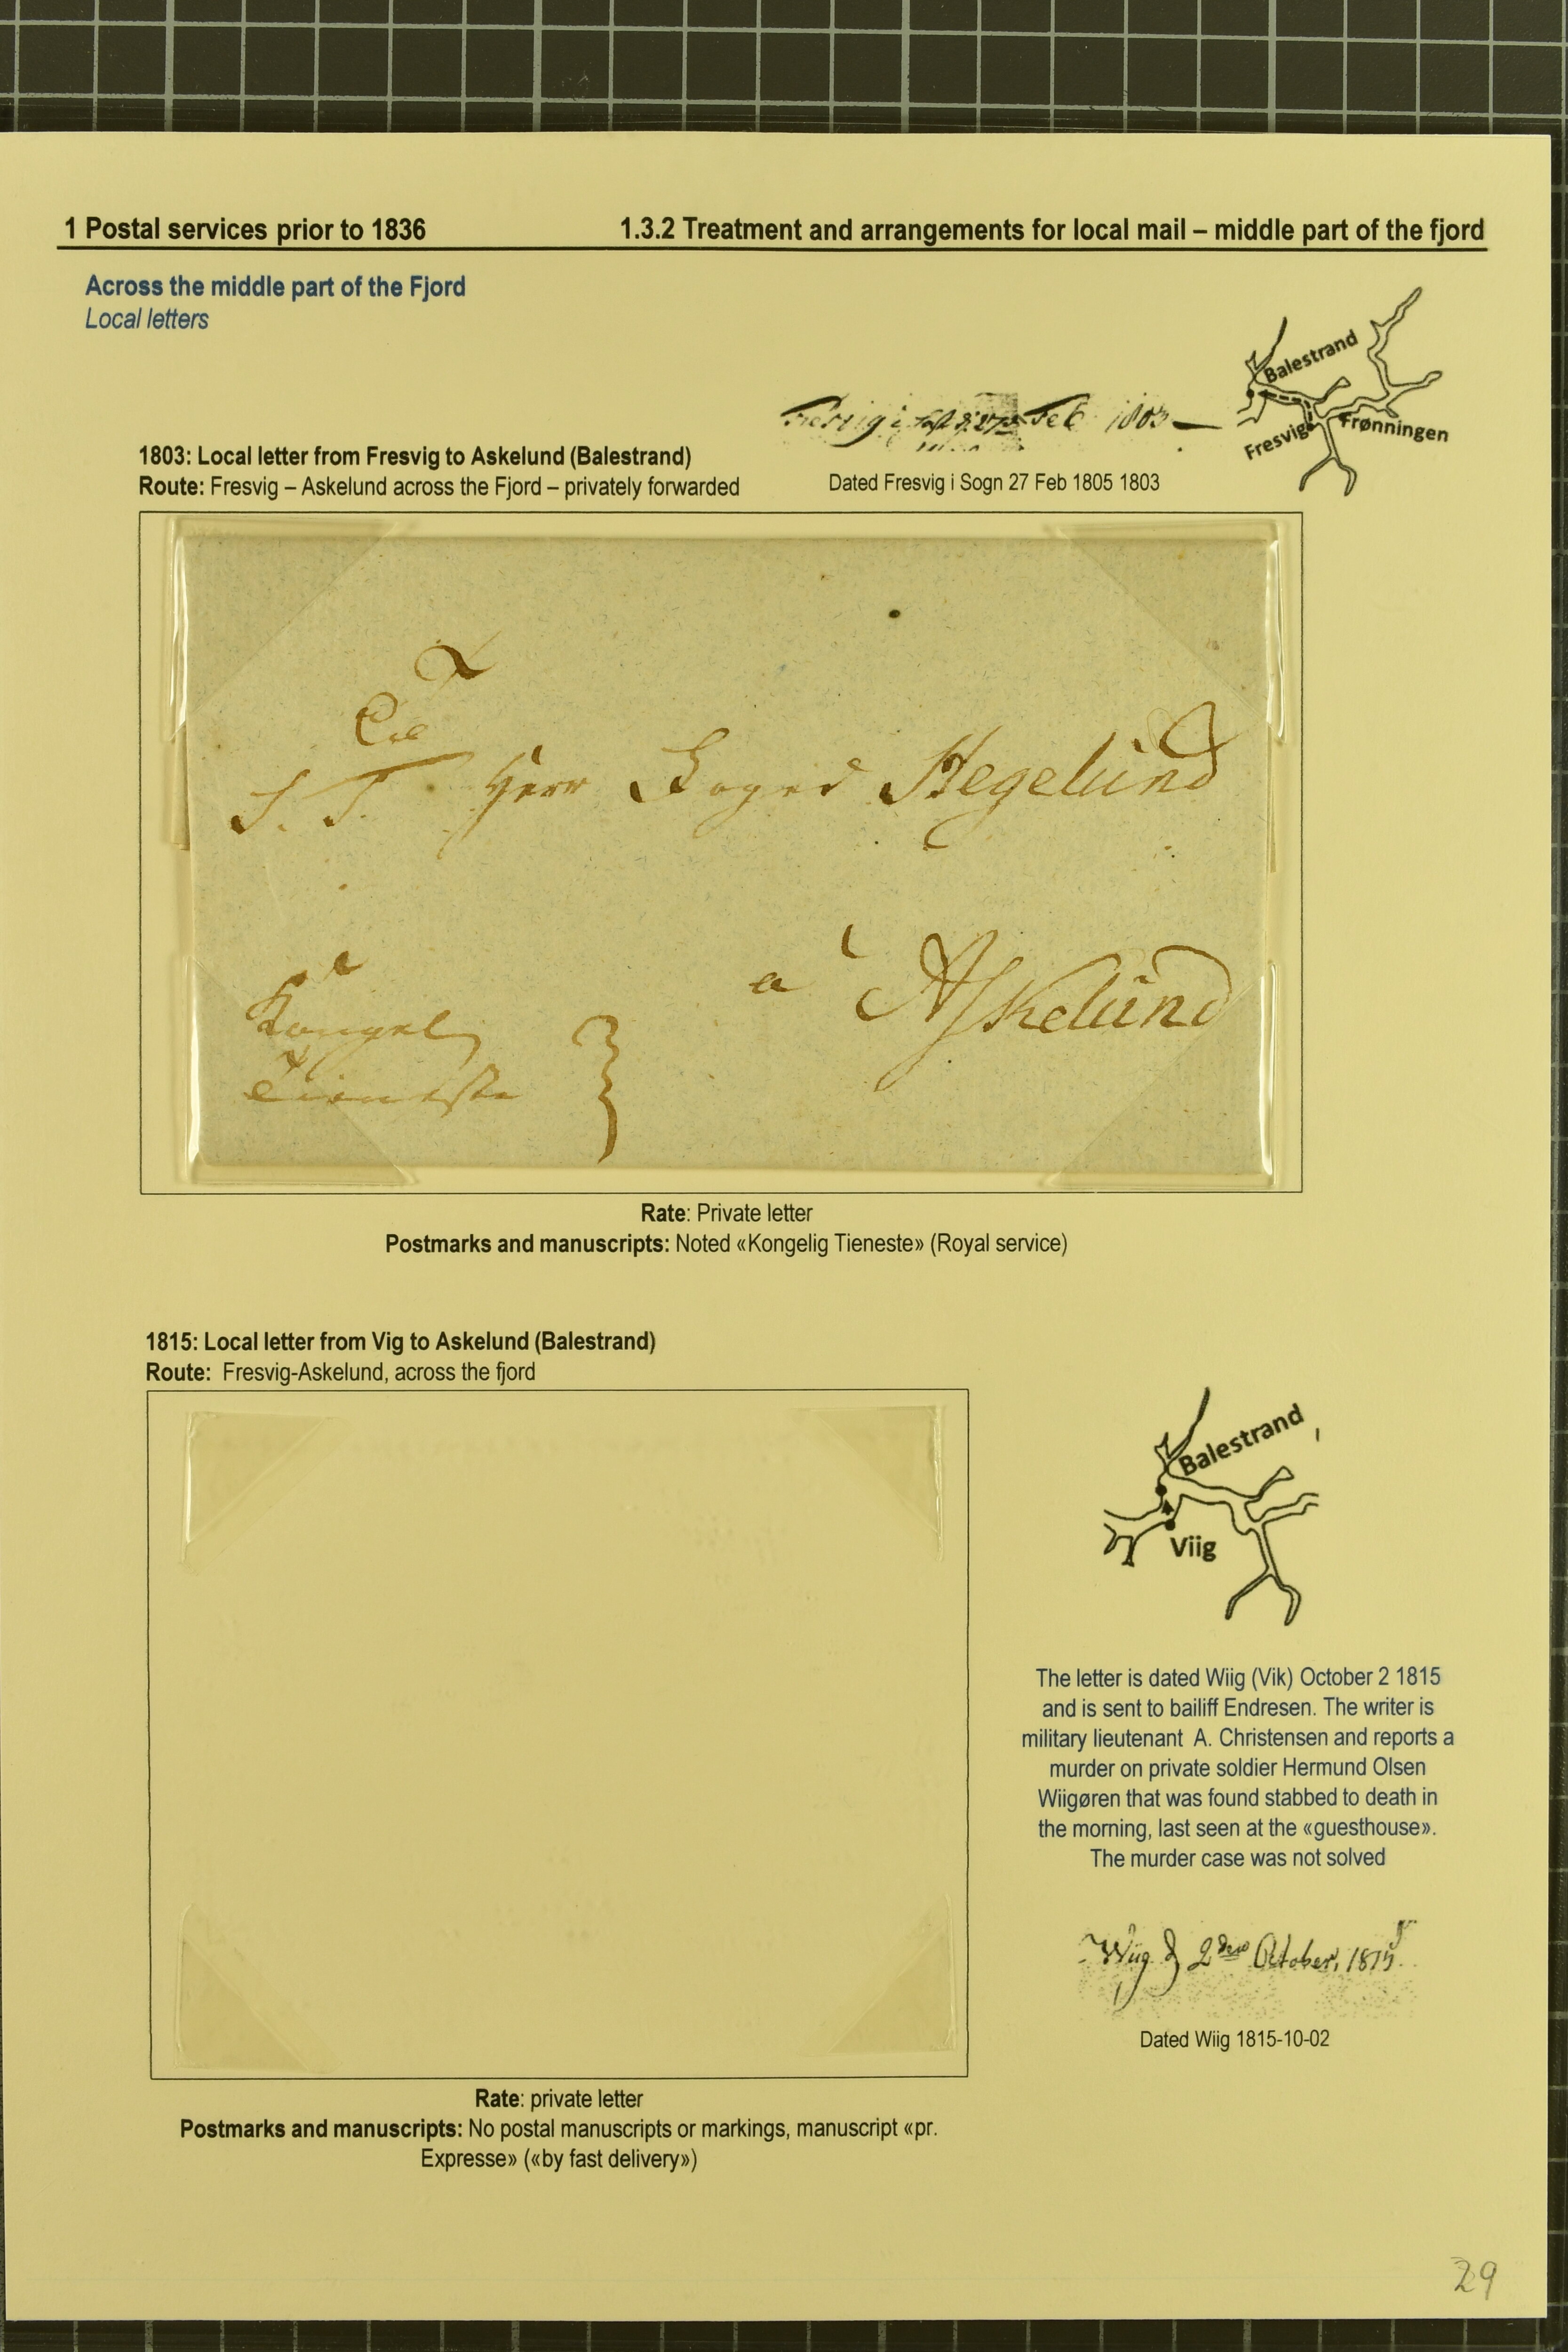 1 Postal services prior to 1836
1.3.2 Treatment and arrangements for local mail – middle part of the fjord
Across the middle part of the Fjord
Local letters
Balestrand
Fresvig
Frønningen
Feb 1803
1803: Local letter from Fresvig to Askelund (Balestrand)
Route: Fresvig – Askelund across the Fjord – privately forwarded
Dated Fresvig i Sogn 27 Feb 1805 1803
Til
S. T. Herr Foged Hegelund
a Askelund
Kongel
Tieneste
Rate: Private letter
Postmarks and manuscripts: Noted «Kongelig Tieneste» (Royal service)
1815: Local letter from Vig to Askelund (Balestrand)
Route: Fresvig-Askelund, across the fjord
Balestrand
Viig
The letter is dated Wiig (Vik) October 2 1815
and is sent to bailiff Endresen. The writer is
military lieutenant A. Christensen and reports a
murder on private soldier Hermund Olsen
Wiigøren that was found stabbed to death in
the morning, last seen at the «guesthouse».
The murder case was not solved
Wiig d 2den October, 1815
Dated Wiig 1815-10-02
Rate: private letter
Postmarks and manuscripts: No postal manuscripts or markings, manuscript «pr.
Expresse» («by fast delivery»)
29